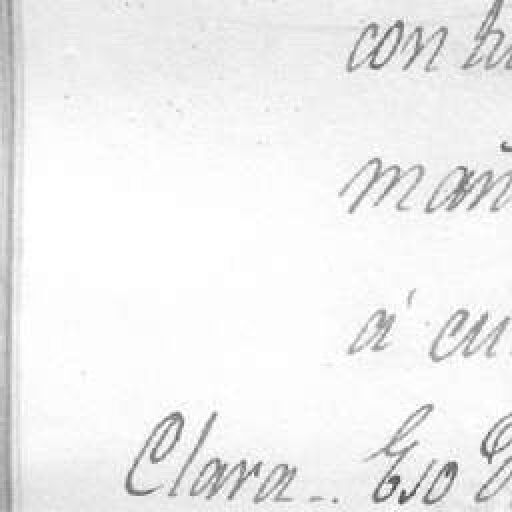 con
mañ
á cu
Clara... Eso